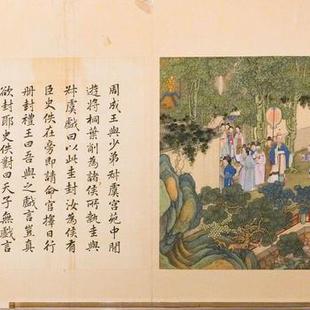 周成王與少弟叔虞宮苑中閒
遊將桐葉削為諸侯所執圭與
叔虞戲曰以此圭封汝為侯有
臣史佚在旁即請命官擇日行
冊封禮王曰吾與之戲言豈真
欲封耶史佚對曰天子無戲言